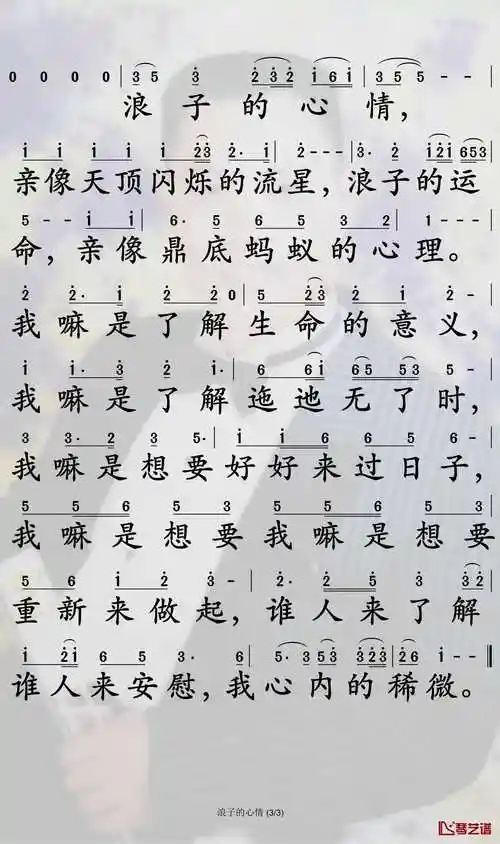 0 0 0 0 | 3 5 3 | 2 3 2 i 6 i | 3 5 5 - - |
浪子的心情,
i i i i i i 2 3 | 2· i | 2 - - - | 3· 2 | i 2 i 6 5 3 |
亲像天顶闪烁的流星,浪子的运
5 - - i i | 6· 5 6 5 3 2 | 1 - - - |
命,亲像鼎底蚂蚁的心理。
2 2· i 2 2 0 | 5 2 3 2 i | 2 - - |
我嘛是了解生命的意义,
i i· 3 2 i | 6 6 i i 6 5 5 3 | 5 - |
我嘛是了解拖过无了时,
3 3· 2 3 5· | i i 6 6 5 6 5 | 5 - |
我嘛是想要好好来过日子,
5 5 6 5 3 | 5 5 6 5 3 |
我嘛是想要我嘛是想要
5 6 i 2 3 - | 2· 2 5 3 2 |
重新来做起,谁人来了解
i 2 i 6 5 3· 6 | 5· 3 5 i 3 2 3 | 2 6 i - - ‖
谁人来安慰,我心内的稀微。
浪子的心情 (3/3)
琴艺谱